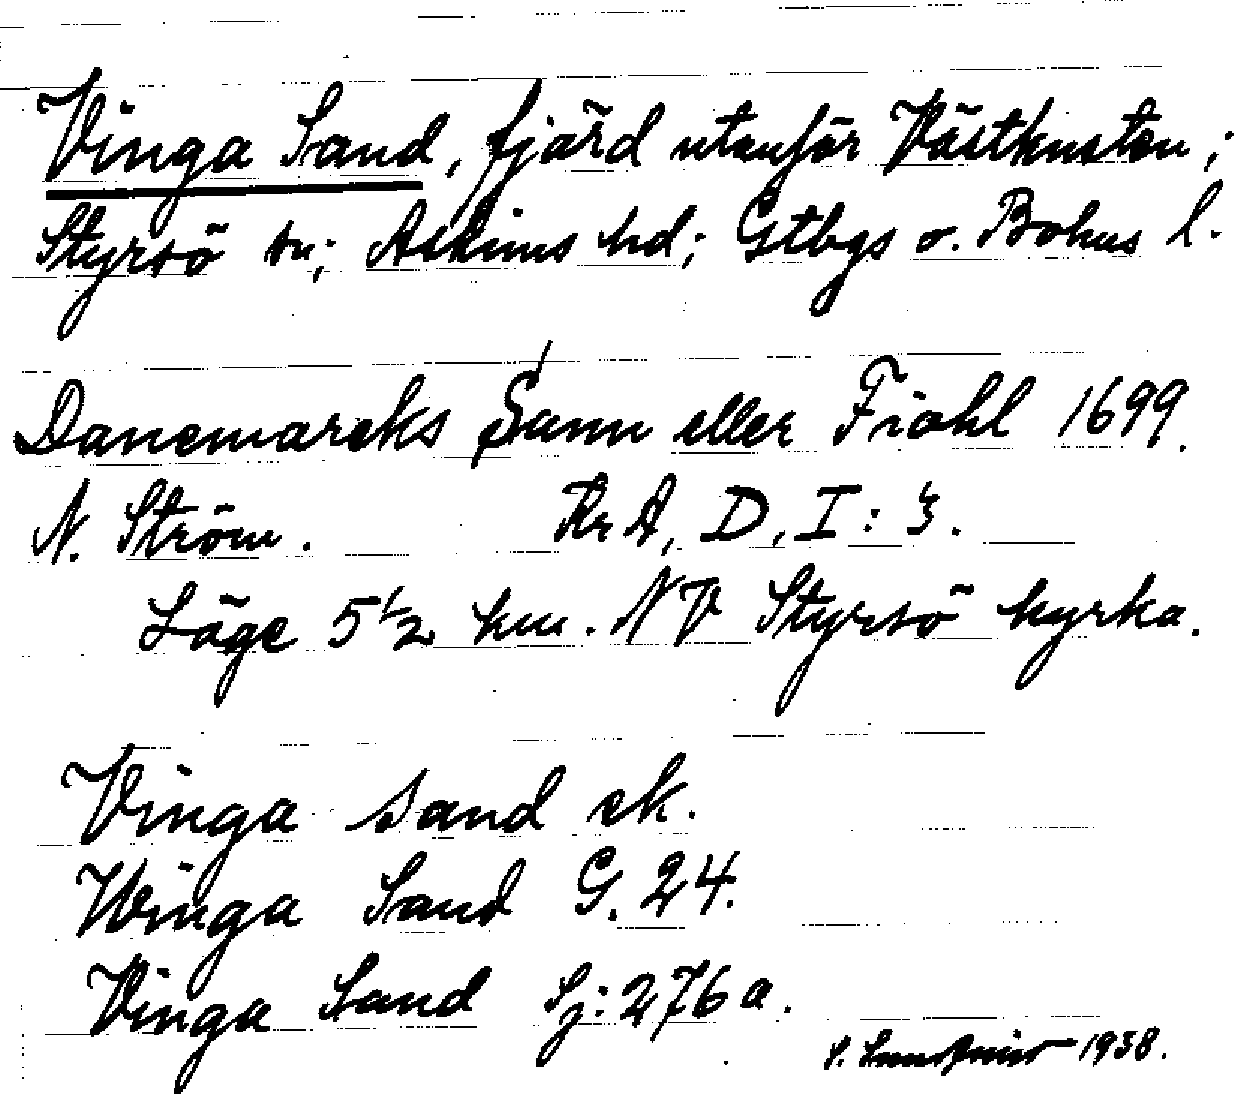 Vinga Sand, fjärd utanför Västkusten;
Styrsö sn; Askims hd; Gtbgs o. Bohus l.
Danemarcks Sann eller Fiöhl 1699.
N. Ström. Kr A, D, I: 3.
Läge 5 1/2 km. NV Styrsö kyrka.
Vinga Sand ek.
Winga Sand G. 24.
Vinga Sand Sj: 276 a.
S. Sundqvist 1938.